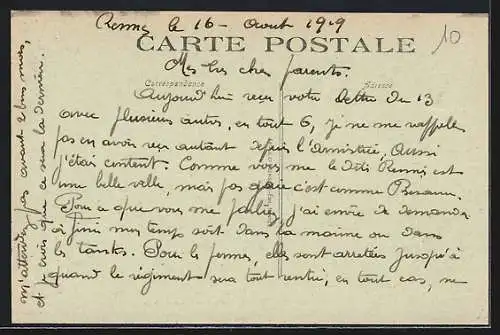 Rennes le 16 - Aout 1919
10
CARTE POSTALE
Mes très chers parents.
Correspondance
Adresse
Aujourd'hui reçu votre lettre du 13
avec plusieurs autres, en tout 6, je ne me rappelle
pas en avoir reçu autant depuis l'armistice. Aussi
j'étais content. Comme vous me le dites Rennes est
une belle ville, mais pas gaie c'est comme
Pour ce que vous me parliez j'ai envie de demander
à finir mes temps soit dans la marine ou dans
les tanks. Pour les permes, elles sont arretées jusqu'à
quand le régiment sera tout rentré, en tout cas, ne
m'attendez pas avant 2 bons mois,
et je crois que ce sera la dernière.